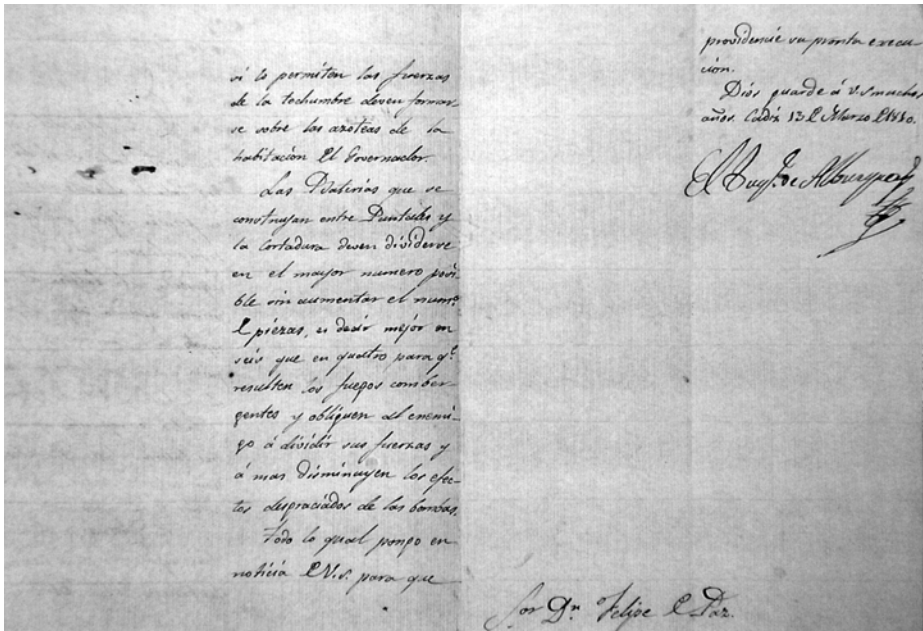 si lo permiten las fuerzas
de la techumbre deven formar
se sobre las azoteas de la
habitacion El Governador.
Las Baterias que se
construyan entre Puntales y
la Cortadura deven dividirse
en el mayor numero posi
ble sin aumentar el num.º
de piezas, es decir mejor en
seis que en quatro para q.e
resulten los fuegos comber-
gentes y obliguen al enemi-
go á dividir sus fuerzas y
á mas disminuyen los efec-
tos desgraciados de las bombas.
Todo lo qual pongo en
noticia de V.S. para que
providencie su pronta execu
cion.
Dios guarde á V.S. muchos
años. Cadiz 13 de Marzo de 1810.
El Duq.e de Alburquerq.e
Sor Dn. Felipe de Paz.